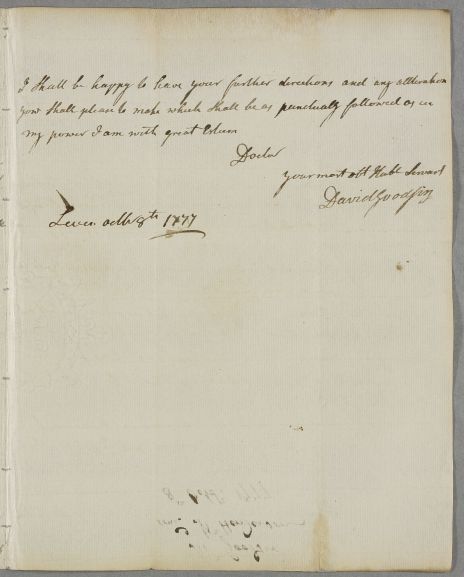 I Shall be happy to have your further directions and any allteration
you Shall please to make which Shall be as punctually followed as in
my power I am with great Esteem
Doctor
your most obt Hube Servant
David Goodsir
Leven 8th 1777